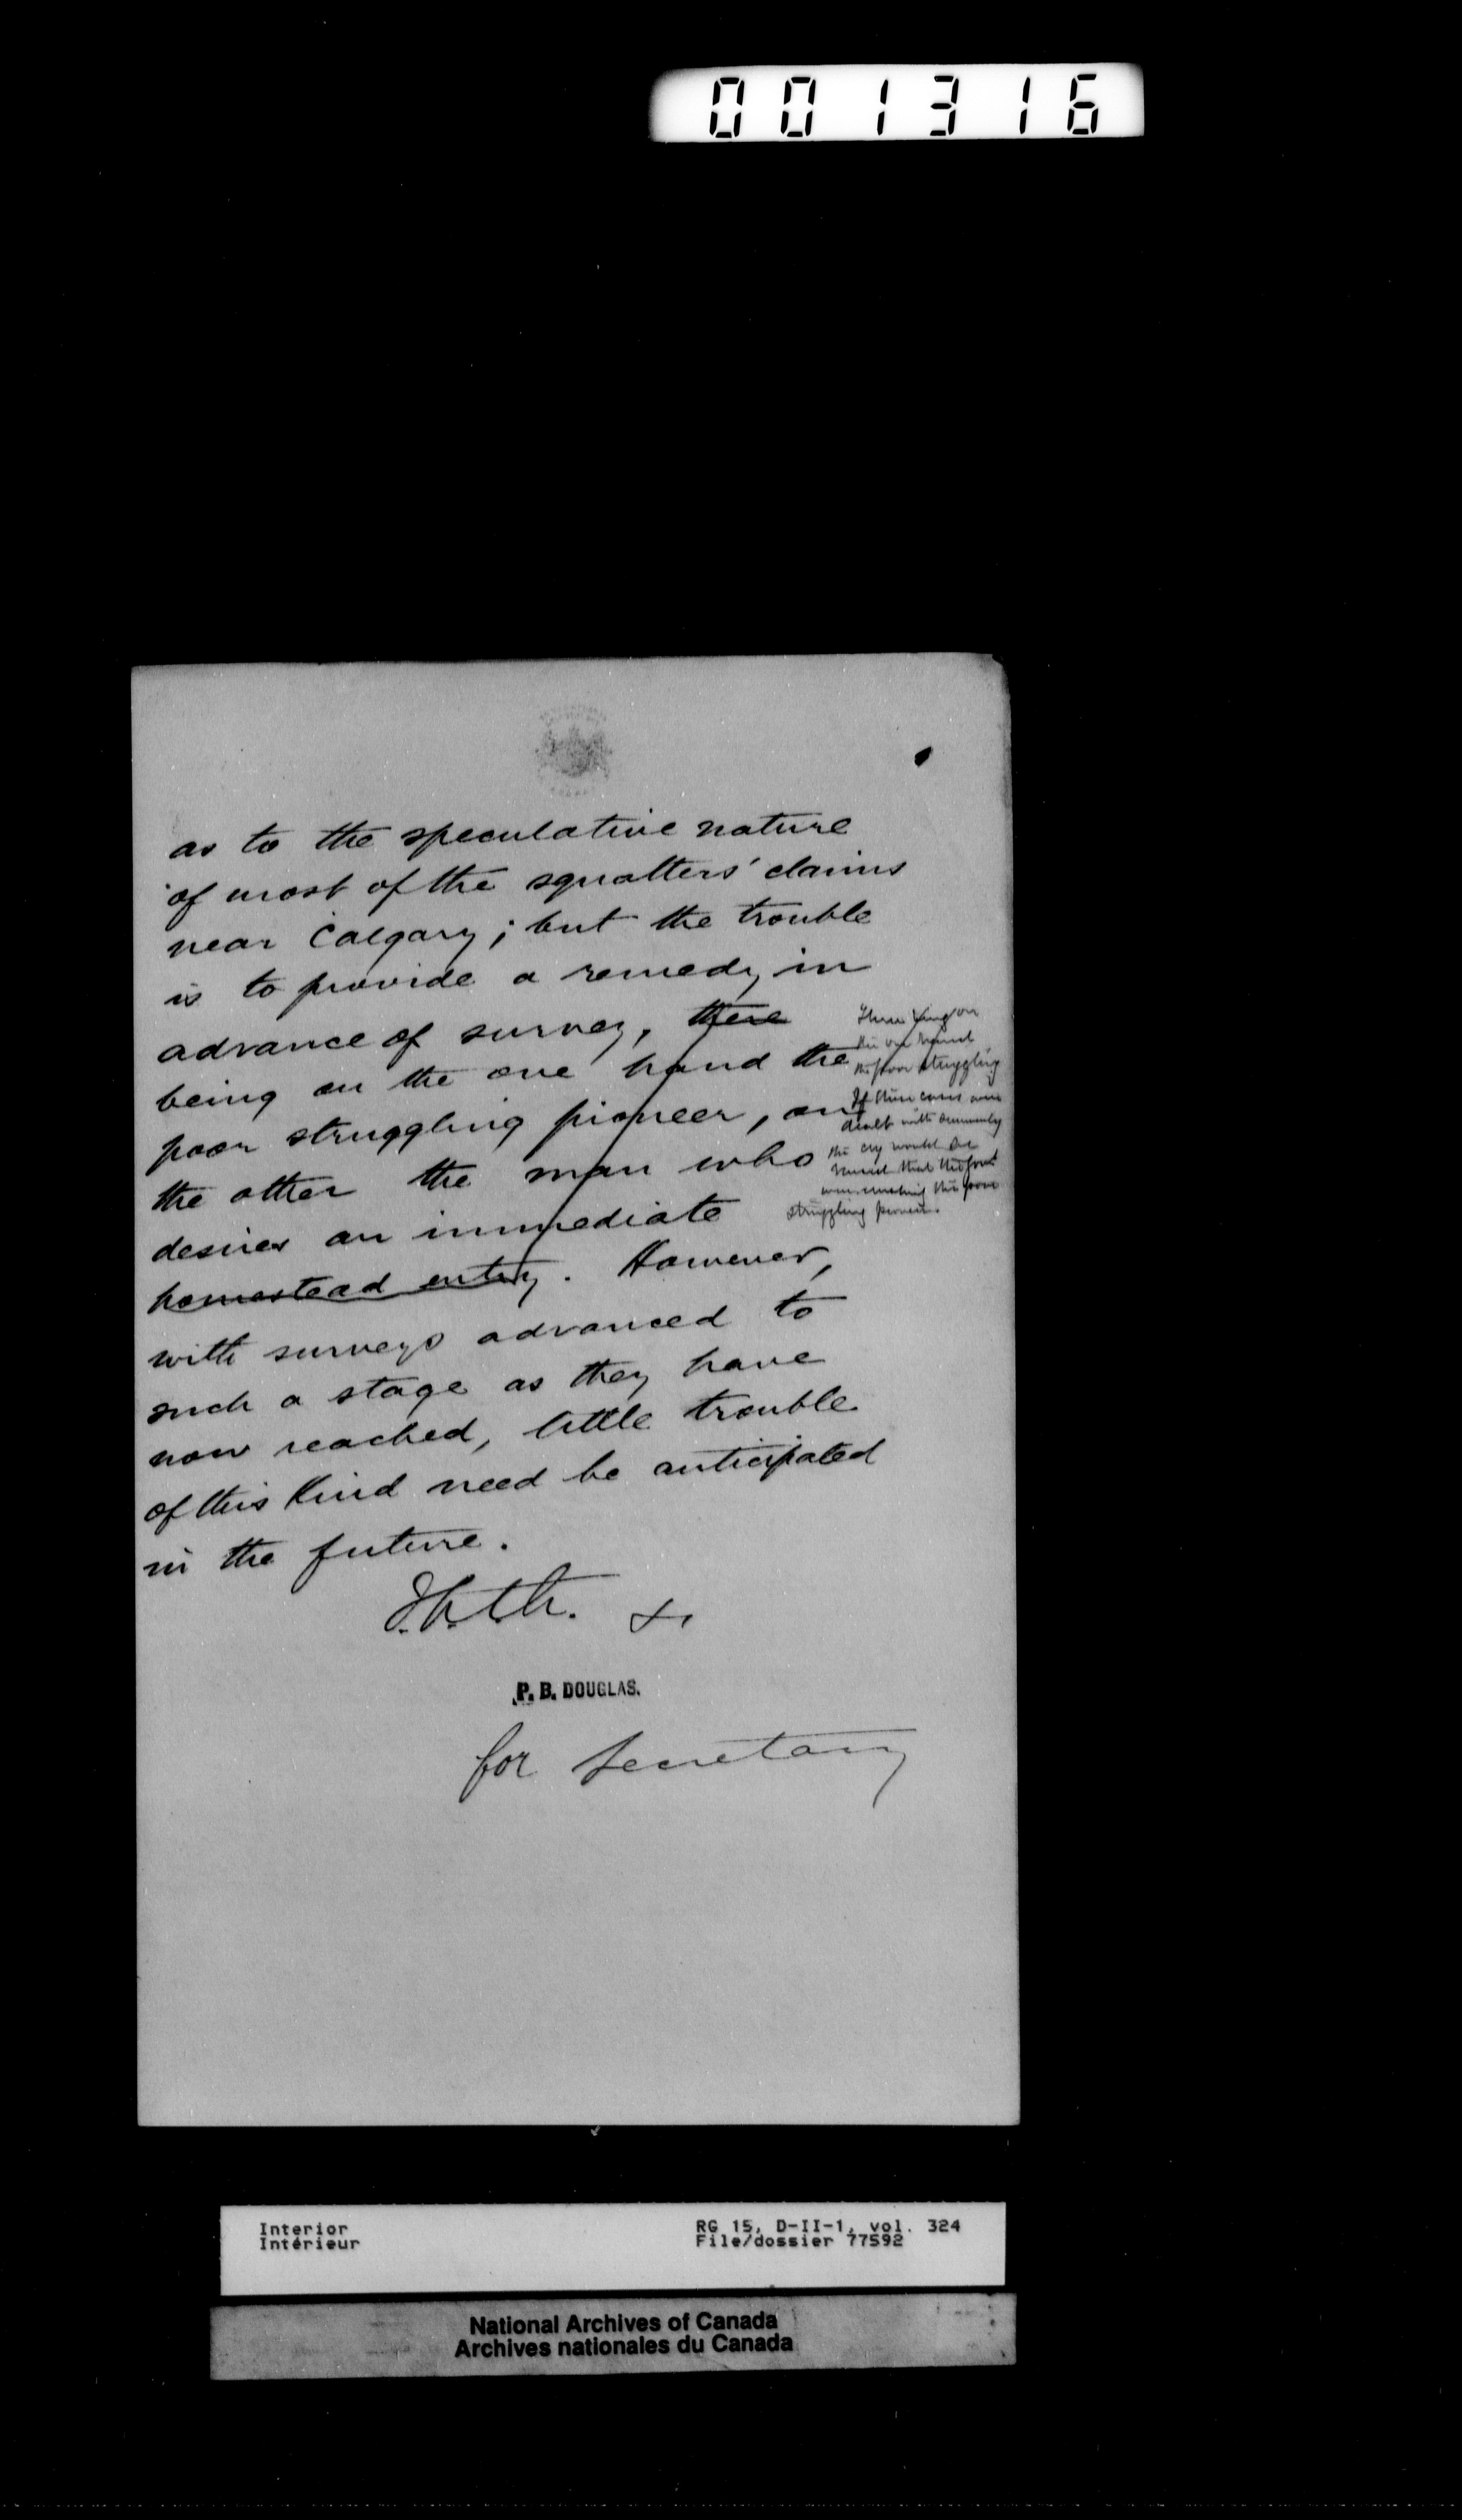 001316
as to the speculative nature
of most of the squatters' claims
near Calgary; but the trouble
is to provide a remedy in
advance of survey, there
being on the one hand the
poor struggling pioneer, on
the other the man who
desires an immediate
homestead entry. However,
with surveys advanced to
such a stage as they have
now reached, little trouble
of this kind need be anticipated
in the future.
There being on
the one hand
the poor struggling
If these cases were
dealt with
the cry would be
raised that the Govt
was crushing the poor
struggling pioneer.
P. B. DOUGLAS.
for Secretary
Interior
Intérieur
RG 15, D-II-1, vol. 324
File/dossier 77592
National Archives of Canada
Archives nationales du Canada